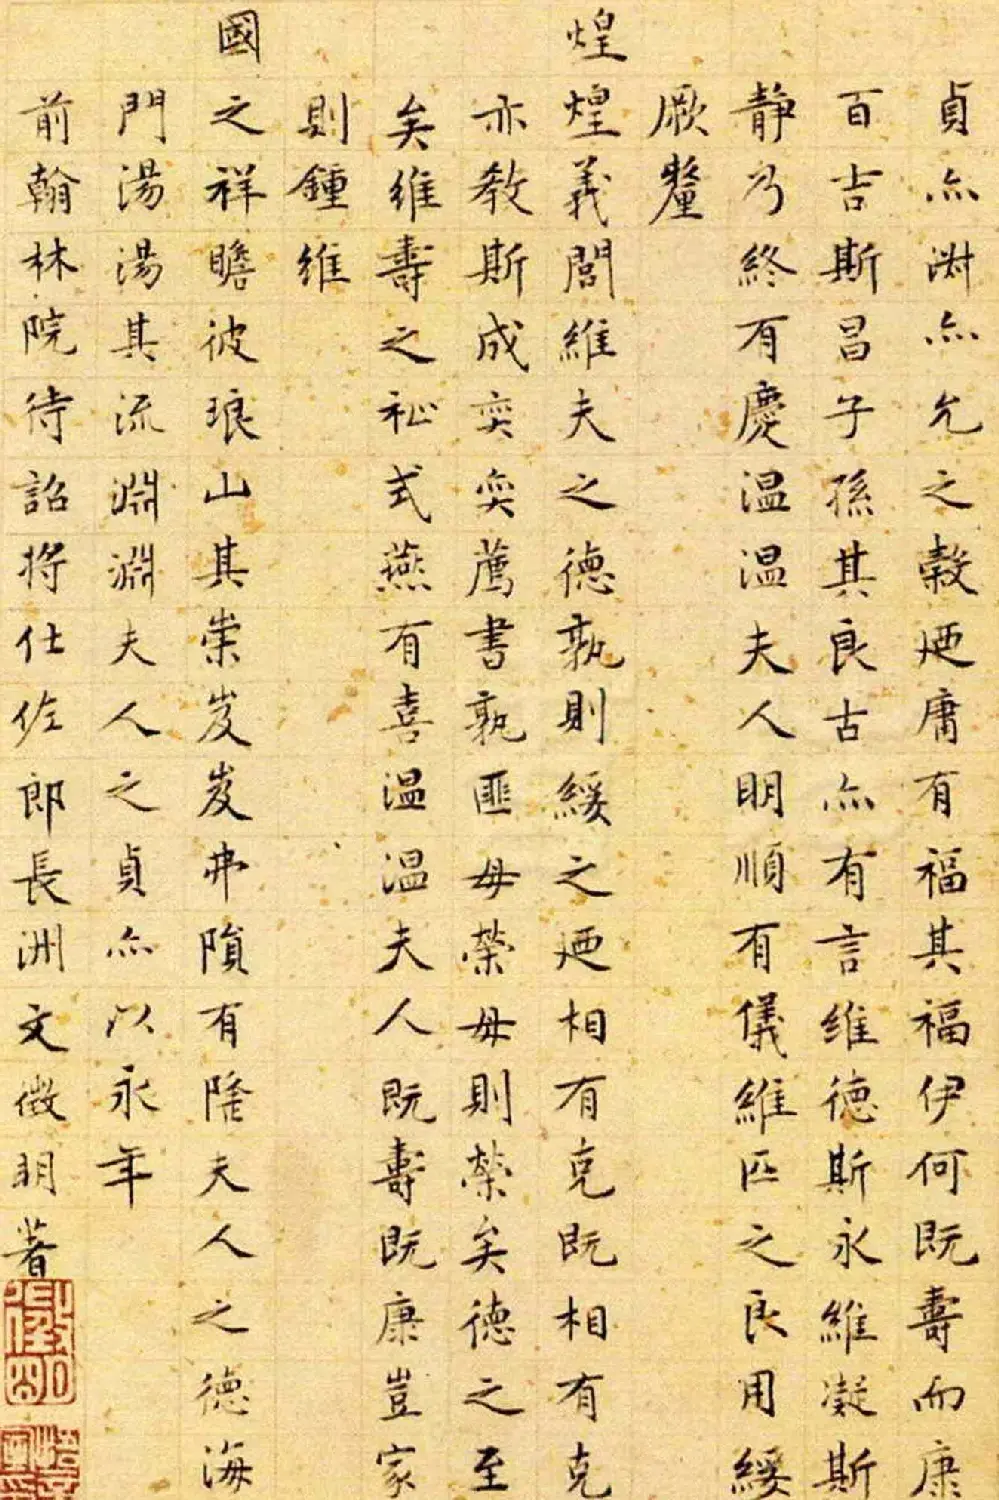 貞亦淑亦允之穀迺庸有福其福伊何既壽而康
百吉斯昌子孫其良古亦有言維德斯永維凝斯
靜乃終有慶温温夫人明順有儀維匹之良用綏
厥釐
煌煌義閭維夫之德孰則綏之迺相有克既相有克
亦教斯成奕奕薦書孰匪母榮母則榮矣德之至
矣維壽之祉式燕有喜温温夫人既壽既康豈家
則鍾維
國之祥瞻彼琅山其崇岌岌弗隕有隆夫人之德海
門湯湯其流淵淵夫人之貞亦以永年
前翰林院待詔將仕佐郎長洲文徵明著